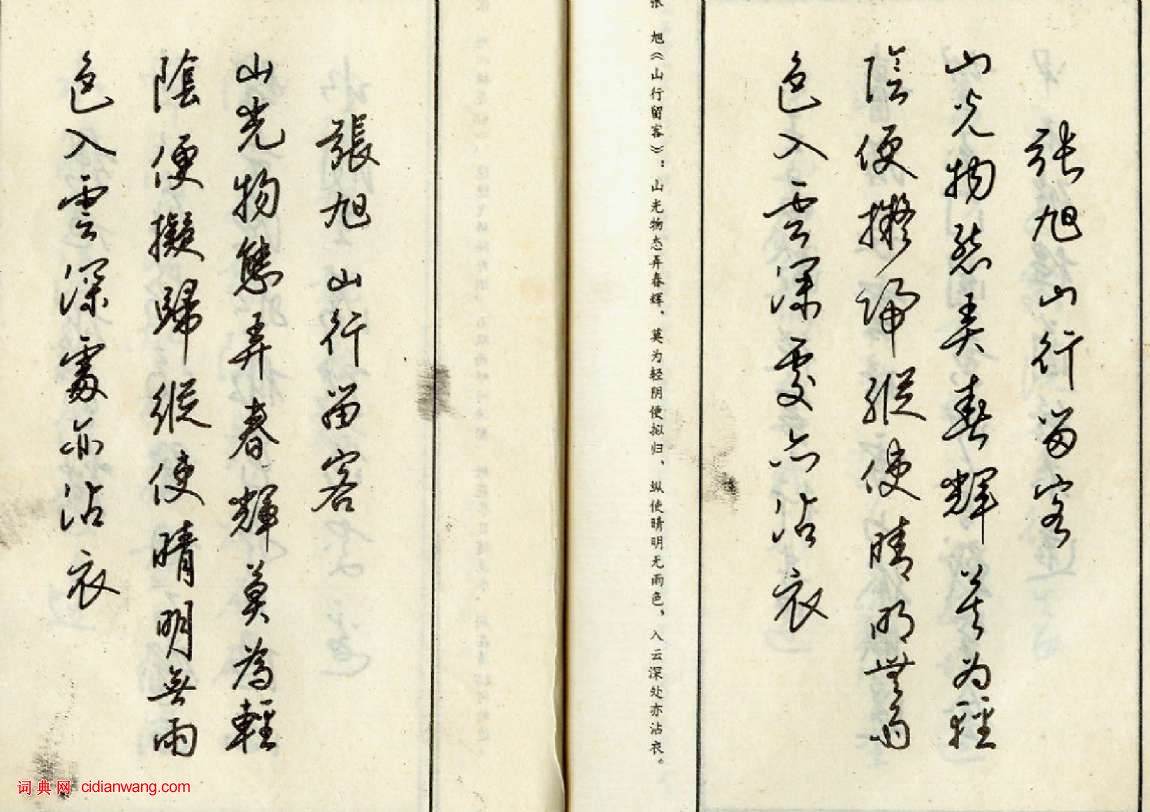 張旭山行留客
山光物態弄春輝莫为輕
陰便擬歸縱使晴明無雨
色入雲深處亦沾衣
张 旭《山行留客》：山光物态弄春辉、莫为轻阴便拟归、纵使晴明无雨色，入云深处亦沾衣。
張旭山行留客
山光物態弄春輝莫為輕
陰便擬歸縱使晴明無雨
色入雲深處亦沾衣
词典网 cidianwang.com